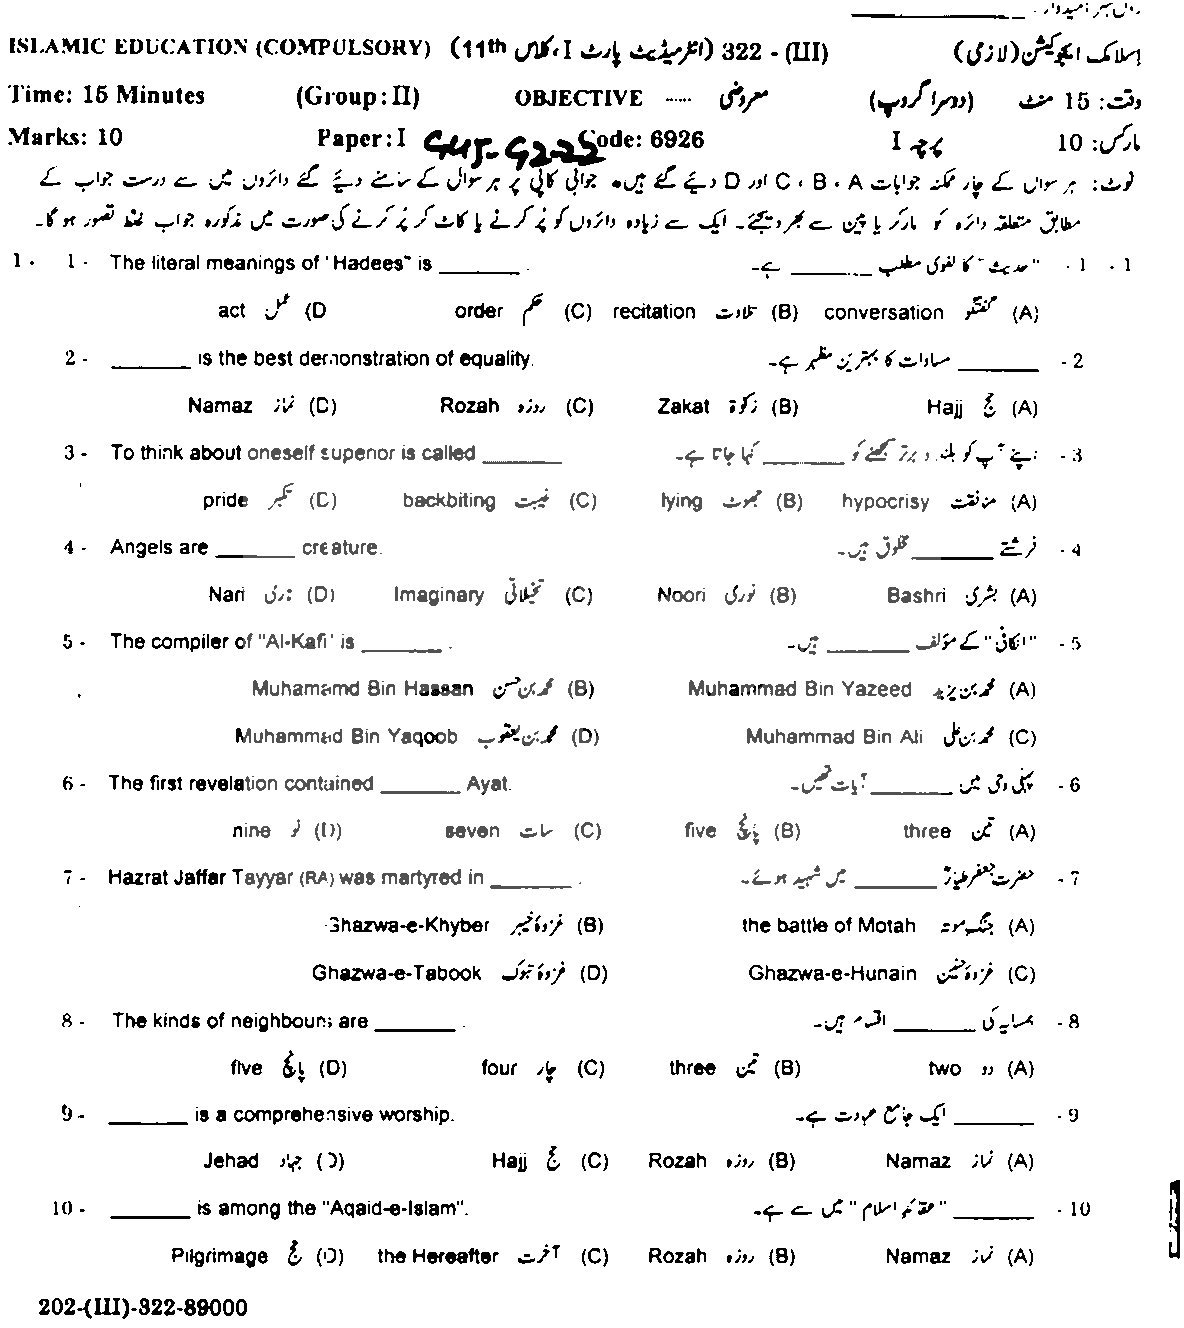 رول نمبر امیدوار
ISLAMIC EDUCATION (COMPULSORY) (انٹرمیڈیٹ پارٹ I، کلاس 11th) 322 - (III) اسلامک ایجوکیشن (لازمی)
Time: 15 Minutes (Group : II) OBJECTIVE ----- معروضی (دوسرا گروپ) وقت: 15 منٹ
Marks: 10 Paper : I GUJ-G2-22 Code: 6926 پرچہ I مارکس: 10
نوٹ: ہر سوال کے چار ممکنہ جوابات A ، B ، C اور D دیئے گئے ہیں۔ جوابی کاپی پر ہر سوال کے سامنے دیئے گئے دائروں میں سے درست جواب کے
مطابق متعلقہ دائرہ کو مارکر یا پین سے بھر دیجئے۔ ایک سے زیادہ دائروں کو پُر کرنے یا کاٹ کر پُر کرنے کی صورت میں مذکورہ جواب غلط تصور ہو گا۔
1 . 1 - The literal meanings of "Hadees" is ________ . "حدیث" کا لغوی مطلب ________ ہے۔ 1 - 1 .
act عمل (D order حکم (C) recitation تلاوت (B) conversation گفتگو (A)
2 - ________ is the best demonstration of equality. ________ مساوات کا بہترین مظہر ہے۔ 2 -
Namaz نماز (D) Rozah روزہ (C) Zakat زکوٰۃ (B) Hajj حج (A)
3 - To think about oneself superior is called ________ اپنے آپ کو بلند و برتر سمجھنے کو ________ کہا جاتا ہے۔ 3 -
pride تکبر (D) backbiting غیبت (C) lying جھوٹ (B) hypocrisy منافقت (A)
4 - Angels are ________ creature. فرشتے ________ مخلوق ہیں۔ 4 -
Nari ناری (D) Imaginary تخیلاتی (C) Noori نوری (B) Bashri بشری (A)
5 - The compiler of "Al-Kafi" is ________ . "الکافی" کے مؤلف ________ ہیں۔ 5 -
Muhamamd Bin Hassan محمد بن حسن (B) Muhammad Bin Yazeed محمد بن یزید (A)
Muhammad Bin Yaqoob محمد بن یعقوب (D) Muhammad Bin Ali محمد بن علی (C)
6 - The first revelation contained ________ Ayat. پہلی وحی میں ________ آیات تھیں۔ 6 -
nine نو (D) seven سات (C) five پانچ (B) three تین (A)
7 - Hazrat Jaffar Tayyar (RA) was martyred in ________ . حضرت جعفر طیارؓ ________ میں شہید ہوئے۔ 7 -
Ghazwa-e-Khyber غزوۂ خیبر (B) the battle of Motah جنگ موتہ (A)
Ghazwa-e-Tabook غزوۂ تبوک (D) Ghazwa-e-Hunain غزوۂ حنین (C)
8 - The kinds of neighbours are ________ . ہمسایہ کی ________ اقسام ہیں۔ 8 -
five پانچ (D) four چار (C) three تین (B) two دو (A)
9 - ________ is a comprehensive worship. ________ ایک جامع عبادت ہے۔ 9 -
Jehad جہاد (D) Hajj حج (C) Rozah روزہ (B) Namaz نماز (A)
10 - ________ is among the "Aqaid-e-Islam". ________ "عقائد اسلام" میں سے ہے۔ 10 -
Pilgrimage حج (D) the Hereafter آخرت (C) Rozah روزہ (B) Namaz نماز (A)
202-(III)-322-89000